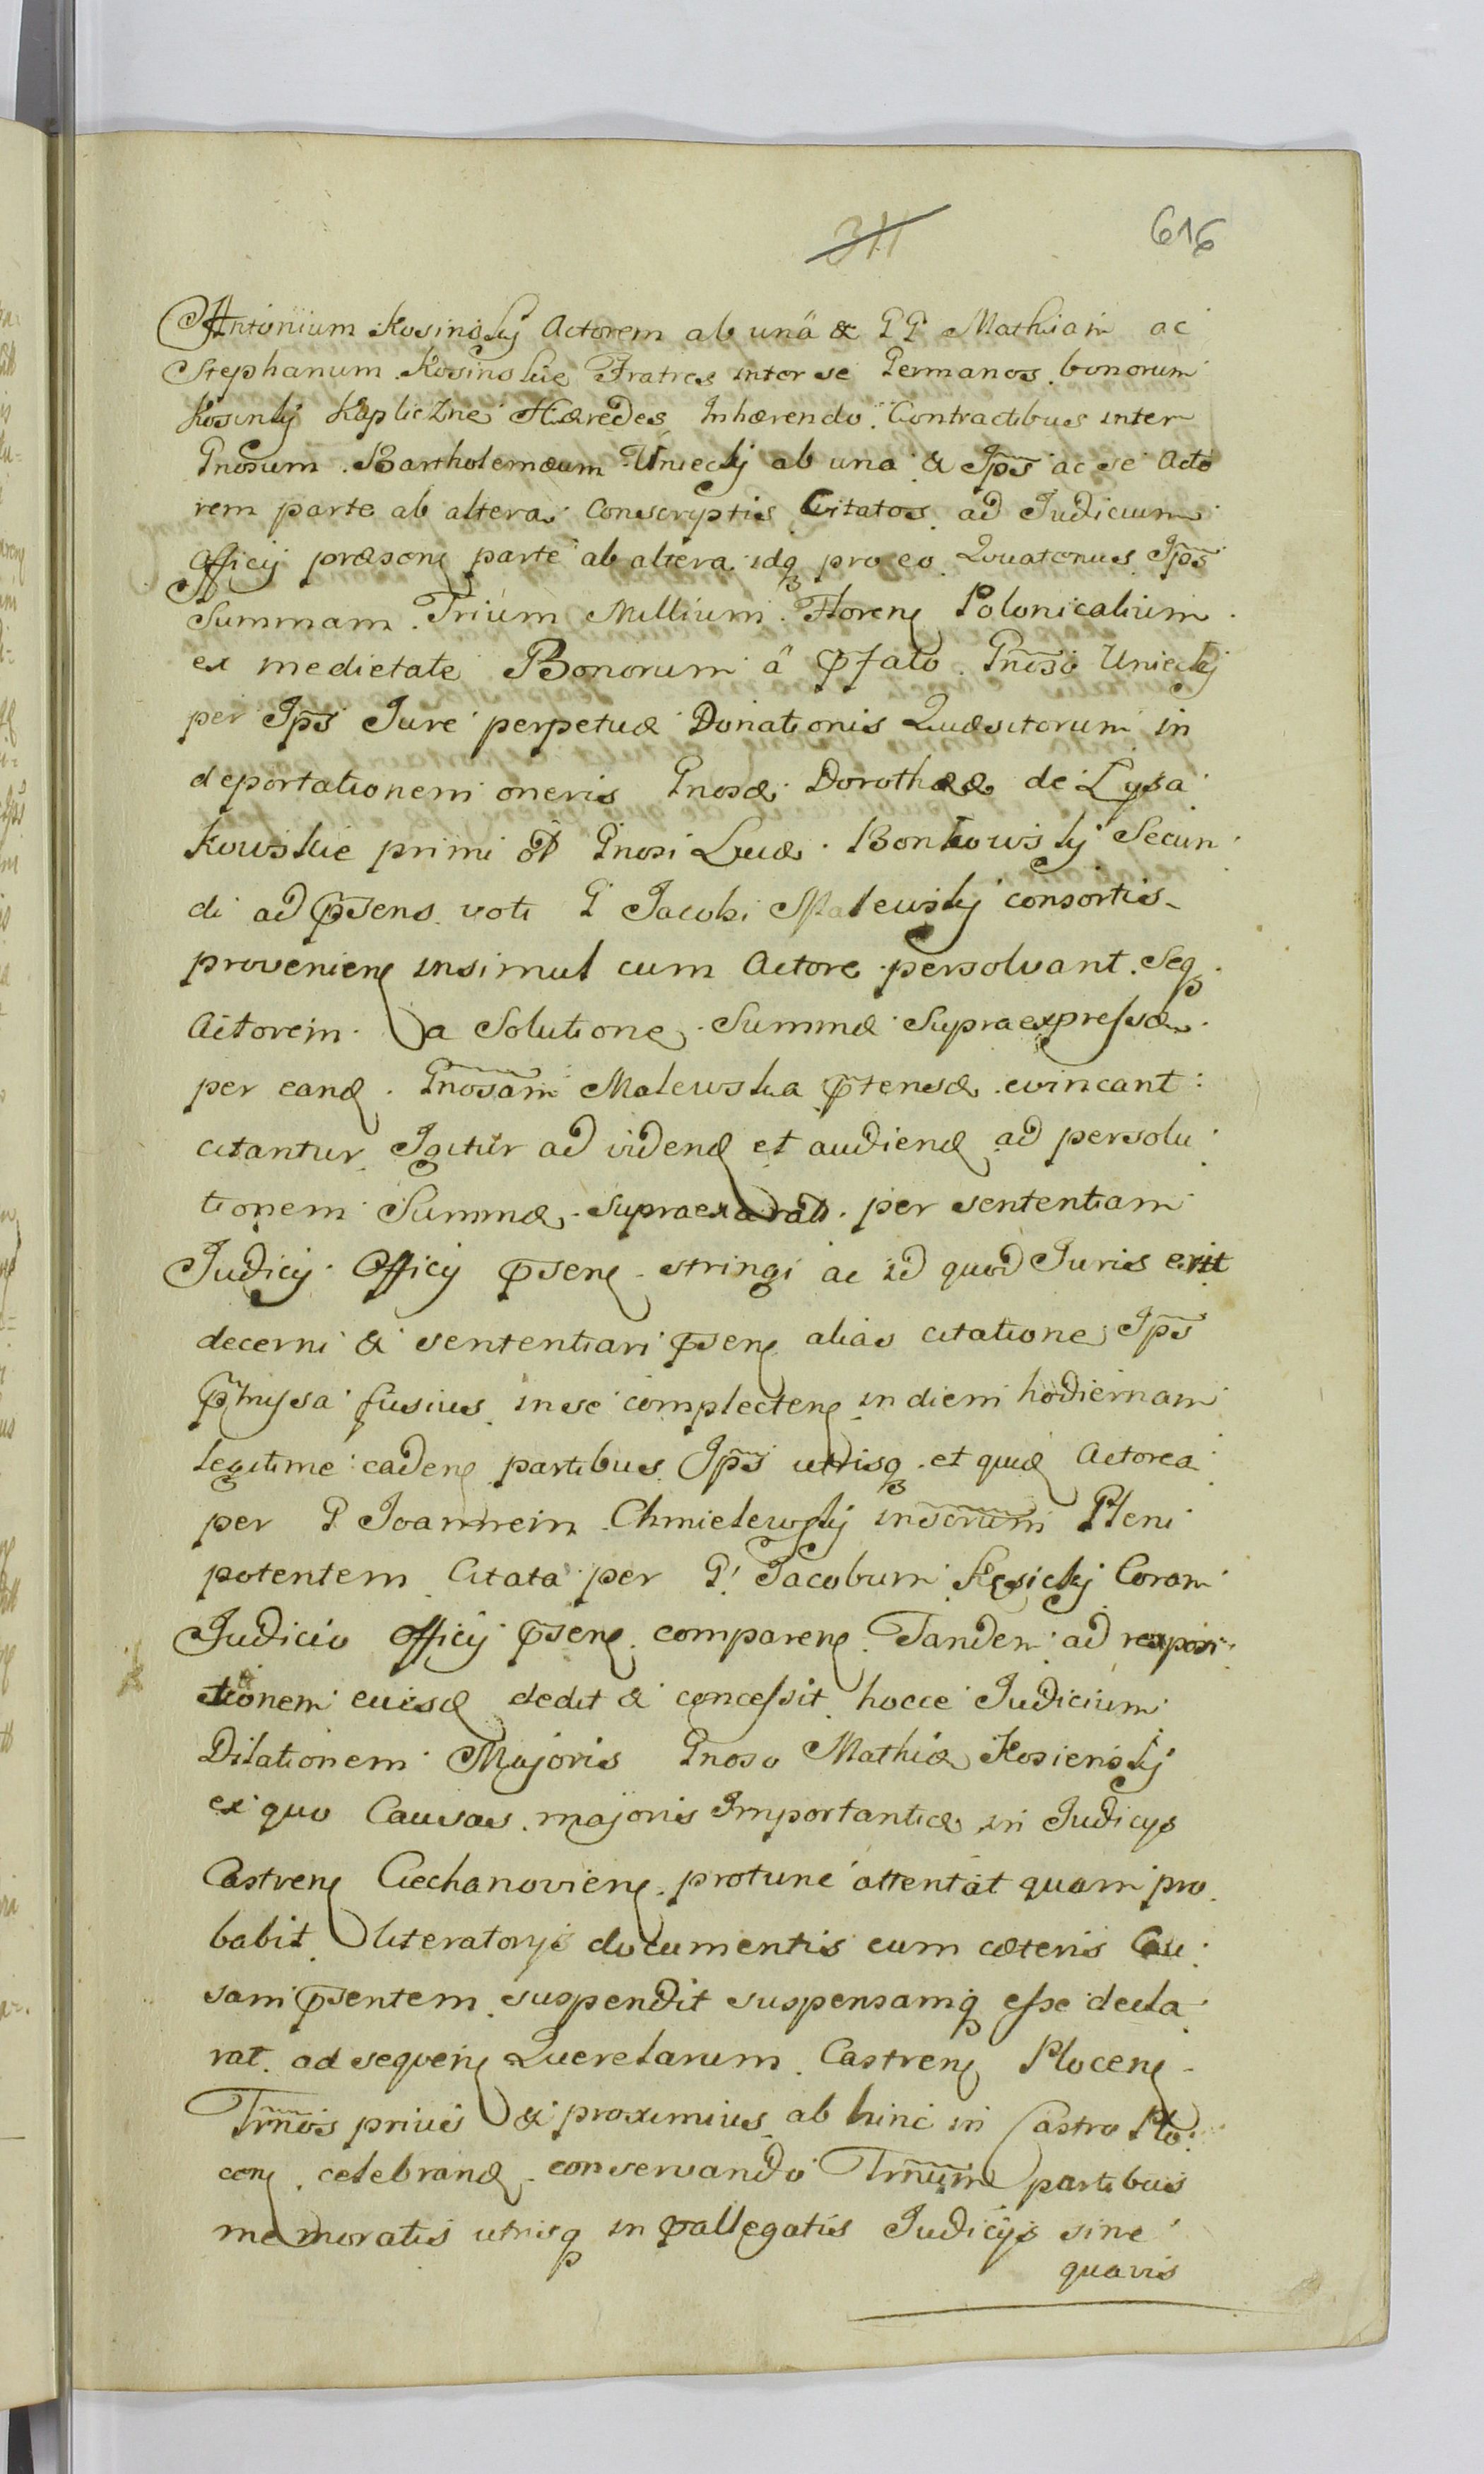 311 616
Antonium Kosinskij Actorem ab unâ & GG Mathiam ac
Stephanum Kosinskie Fratres inter se Germanos bonorum
Kosinkij Kapliczne Hæredes Inhærendo Contractibus inter
Gnosum Bartholemæum Unieckij ab una & Ip̃s ac se Acto
rem parte ab altera Conscryptis Citatos ad Judicium
Officij præsens parte ab altera idq pro eo Quatenus Ip̃s
Summam Trium Millium Floren Polonicalium
ex medietate Bonorum â p̃fato Gnoso Unieckij
per Ip̃s Jure perpetuæ Donationis Quæsitorum in
deportationem oneris Gnosæ Dorotheæ de Lysa
kowskie primi & Gnosi Lucæ Bonkowskij Secun
di ad p̃sens voti G Jacobi Malewskij consortis
provenien insimul cum Actore persolvant Seq
Actorem a Solutione Summæ Supraexpressæ
per eand Gnosam Malewska p̃tensæ evincant:
citantur Igitur ad vidend et audiend ad persolu
tionem Summæ supraexarat per sententiam
Judicij Officij p̃sen stringi ac id quod Juris erit
decerni & sententiari p̃sen alias citatione Ip̃s
p̃missa fusius in se complecten in diem hodiernam
legitime caden partibus Ip̃s utrisq et quid Actorea
per G Joannem Chmielewskij inscrum Pleni
potentem Citata per G Jacobum Kęsickij Coram
Judicio Officij p̃sen comparen Tandem ad reqvisi
tionem eiusd dedit & concessit hocce Judicium
Dilationem Majoris Gnoso Mathiæ Kosienskij
ex quo Causas majoris Importantiæ in Judicys
Castren Ciechanovien protunc attentat quam pro
babit literatorys documentis cum cæteris Cau
sam p̃sentem suspendit suspensamq esse decla
rat ad sequen Querelarum Castren Plocen
Trm̃os prius & proximius ab hinc in Castro Plo
cen celebrand conservando Trm̃um partibus
memoratis utrisq in p̃allegatis Judicijs sine
quavis